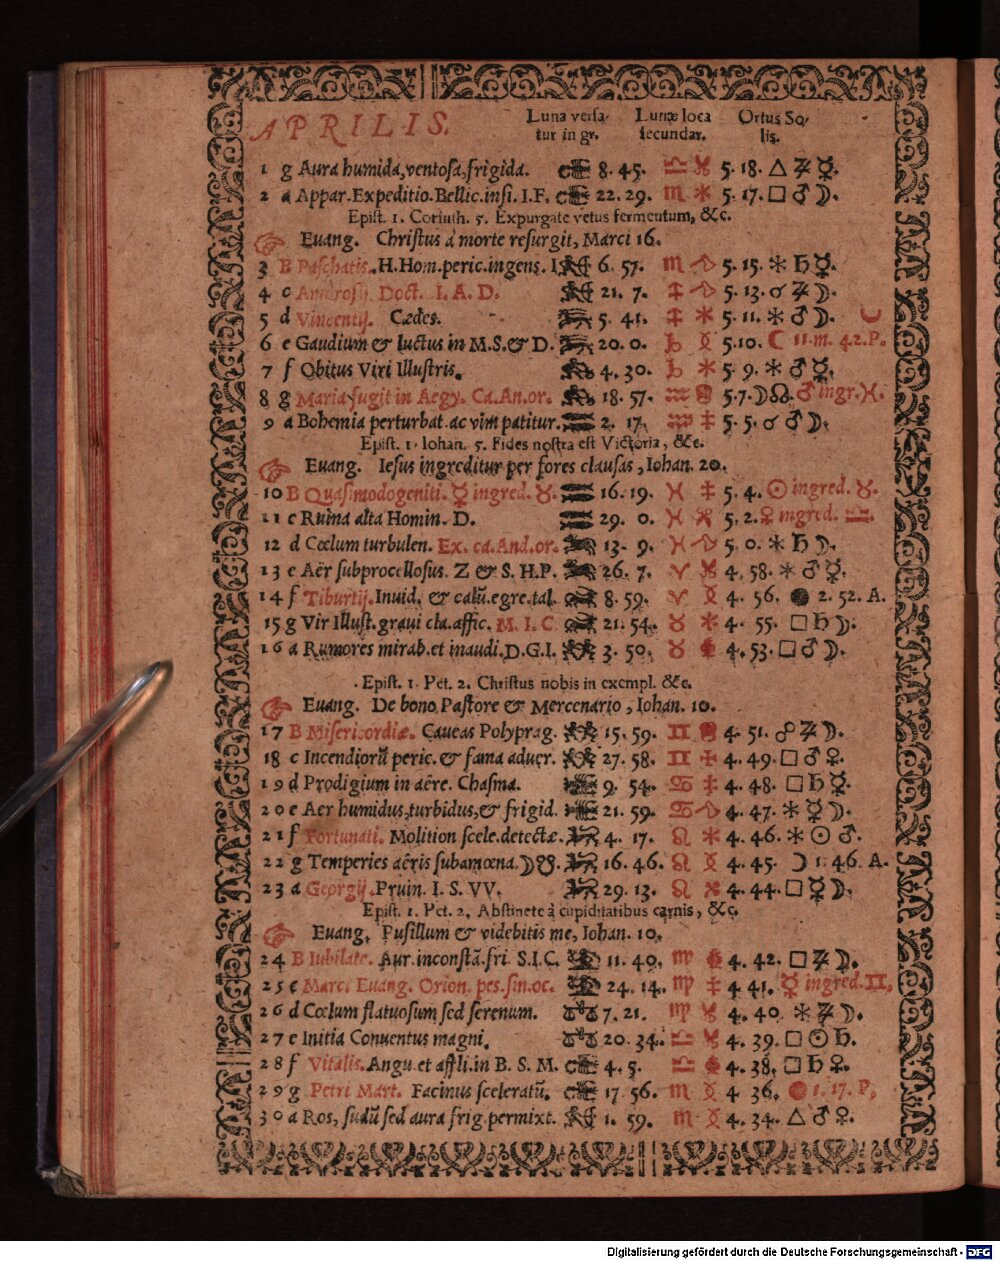 APRILIS. Luna versa- Lunæ loca Ortus So-
tur in gr. secundar. lis.
1 g Aura humida, ventosa, frigida. 8. 45. ♎ 5. 18. △ ♃ ☿.
2 a Appar. Expeditio. Bellic. insi. I. F. 22. 29. ♏ 5. 17. □ ♂ ☽.
Epist. 1. Corinth. 5. Expurgate vetus fermentum, &c.
Euang. Christus à morte resurgit, Marci 16.
3 B Paschatis. H. Hom. peric. ingens. 6. 57. ♏ 5. 15. ⚹ ♄ ☿.
4 c Ambrosij. Doct. I. A. D. 21. 7. 5. 13. ☌ ♃ ☽.
5 d Vincentij. Cædes. 5. 41. 5. 11. ⚹ ♂ ☽. ☾
6 e Gaudium & luctus in M. S. & D. 20. 0. 5. 10. ☾ 11. m. 42. P.
7 f Obitus Viri Illustris. 4. 30. 5. 9. ⚹ ♂ ☿.
8 g Maria fugit in Aegy. Ca. An. or. 18. 57. ♒ 5. 7. ☽ ☊. ♂ ingr. ♓.
9 a Bohemia perturbat. ac vim patitur. 2. 17. ♒ 5. 5. ☌ ♂ ☽.
Epist. 1. Iohan. 5. Fides nostra est Victoria, &c.
Euang. Iesus ingreditur per fores clausas, Iohan. 20.
10 B Quasimodogeniti. ☿ ingred. ♉. 16. 19. ♓ 5. 4. ☉ ingred. ♉.
11 c Ruina alta Homin. D. 29. 0. ♓ 5. 2. ♀ ingred.
12 d Cœlum turbulen. Ex. ca. And. or. 13. 9. ♓ 5. 0. ⚹ ♄ ☽.
13 e Aër subprocellosus. Z & S. H. P. 26. 7. ♈ 4. 58. ⚹ ♂ ☿.
14 f Tiburtij. Inuid. & calũ. egre. tal. 8. 59. ♈ 4. 56. ● 2. 52. A.
15 g Vir Illust. graui cla. affic. M. I. C. 21. 54. ♉ 4. 55. □ ♄ ☽.
16 a Rumores mirab. et inaudi. D. G. I. 3. 50. ♉ 4. 53. □ ♂ ☽.
Epist. 1. Pet. 2. Christus nobis in exempl. &c.
Euang. De bono Pastore & Mercenario, Iohan. 10.
17 B Misericordiæ. Caueas Polyprag. 15. 59. ♊ 4. 51. ☍ ♃ ☽.
18 c Incendiorũ peric. & fama aduer. 27. 58. ♊ 4. 49. □ ♂ ♀.
19 d Prodigium in aëre. Chasma. 9. 54. ♋ 4. 48. □ ♄ ☿.
20 e Aer humidus, turbidus, & frigid. 21. 59. ♋ 4. 47. ⚹ ☿ ☽.
21 f Fortunati. Molition scele. detectæ. 4. 17. ♌ 4. 46. ⚹ ☉ ♂.
22 g Temperies aëris subamœna. ☽ ☋. 16. 46. ♌ 4. 45. ☽ 1. 46. A.
23 a Georgij. Pruin. I. S. VV. 29. 13. ♌ 4. 44. □ ☿ ☽.
Epist. 1. Pet. 2. Abstinete à cupiditatibus carnis, &c.
Euang. Pusillum & videbitis me, Iohan. 10.
24 B Iubilate. Aur. inconstã. fri. S. I. C. 11. 40. ♍ 4. 42. □ ♃ ☽.
25 c Marci Euang. Orion. pes. sin. oc. 24. 14. ♍ 4 41. ☿ ingred. ♊.
26 d Cœlum flatuosum sed serenum. 7. 21. ♍ 4. 40. ⚹ ♃ ☽.
27 e Initia Conuentus magni. 20. 34. ♎ 4. 39. □ ☉ ♄.
28 f Vitalis. Angu. et affli. in B. S. M. 4. 5. ♎ 4. 38. □ ♄ ♀.
29 g Petri Mart. Facinus sceleratũ. 17 56. ♏ 4 36. ● 1. 17. P.
30 a Ros, sudũ sed aura frig. permixt. 1. 59. ♏ 4. 34. △ ♂ ♀.
Digitalisierung gefördert durch die Deutsche Forschungsgemeinschaft - DFG